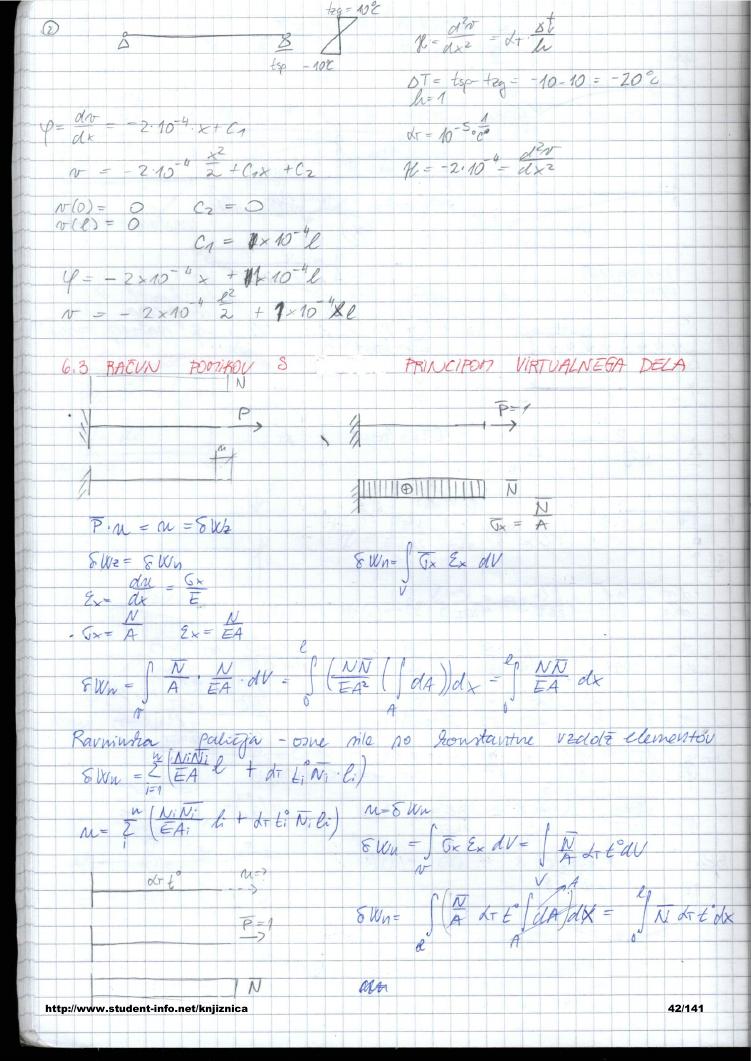 ②
tzg = 10°C
tsp -10°C
ϰ = d²v/dx² = αT · Δt/h
ΔT = tsp - tzg = -10 - 10 = -20°C
h = 1
φ = dv/dx = -2·10⁻⁴·x + C1
αT = 10⁻⁵ 1/°C
v = -2·10⁻⁴ x²/2 + C1x + C2
ϰ = -2·10⁻⁴ = d²v/dx²
v(0) = 0 C2 = 0
v(l) = 0
C1 = 1×10⁻⁴ l
φ = -2×10⁻⁴ x + 1·10⁻⁴ l
v = -2×10⁻⁴ l²/2 + 1×10⁻⁴ x l
6.3 RAČUN POMIKOV S PRINCIPOM VIRTUALNEGA DELA
N
P P̄=1
u
⊕ N̄
σ̄x = N̄/A
P̄·u = u = δWz
δWz = δWn δWn = ∫V σ̄x εx dV
εx = du/dx = σx/E
σx = N/A εx = N/EA
δWn = ∫V N̄/A · N/EA · dV = ∫0^l (NN̄/EA² (∫A dA)) dx = ∫0^l NN̄/EA dx
Ravninska paličja - osne sile so konstantne vzdolž elementov
δWn = Σ i=1^n (NiN̄i/EA l + αT ti° N̄i · li)
u = Σ i^n (NiN̄i/EAi li + αT ti° N̄i li) u = δWn
δWn = ∫V σ̄x εx dV = ∫V N̄/A αT t° dV
αT t° u=?
P̄=1
δWn = ∫l (N̄/A αT t° ∫A dA) dx = ∫0^l N̄ αT t° dx
A
N̄
http://www.student-info.net/knjiznica 42/141